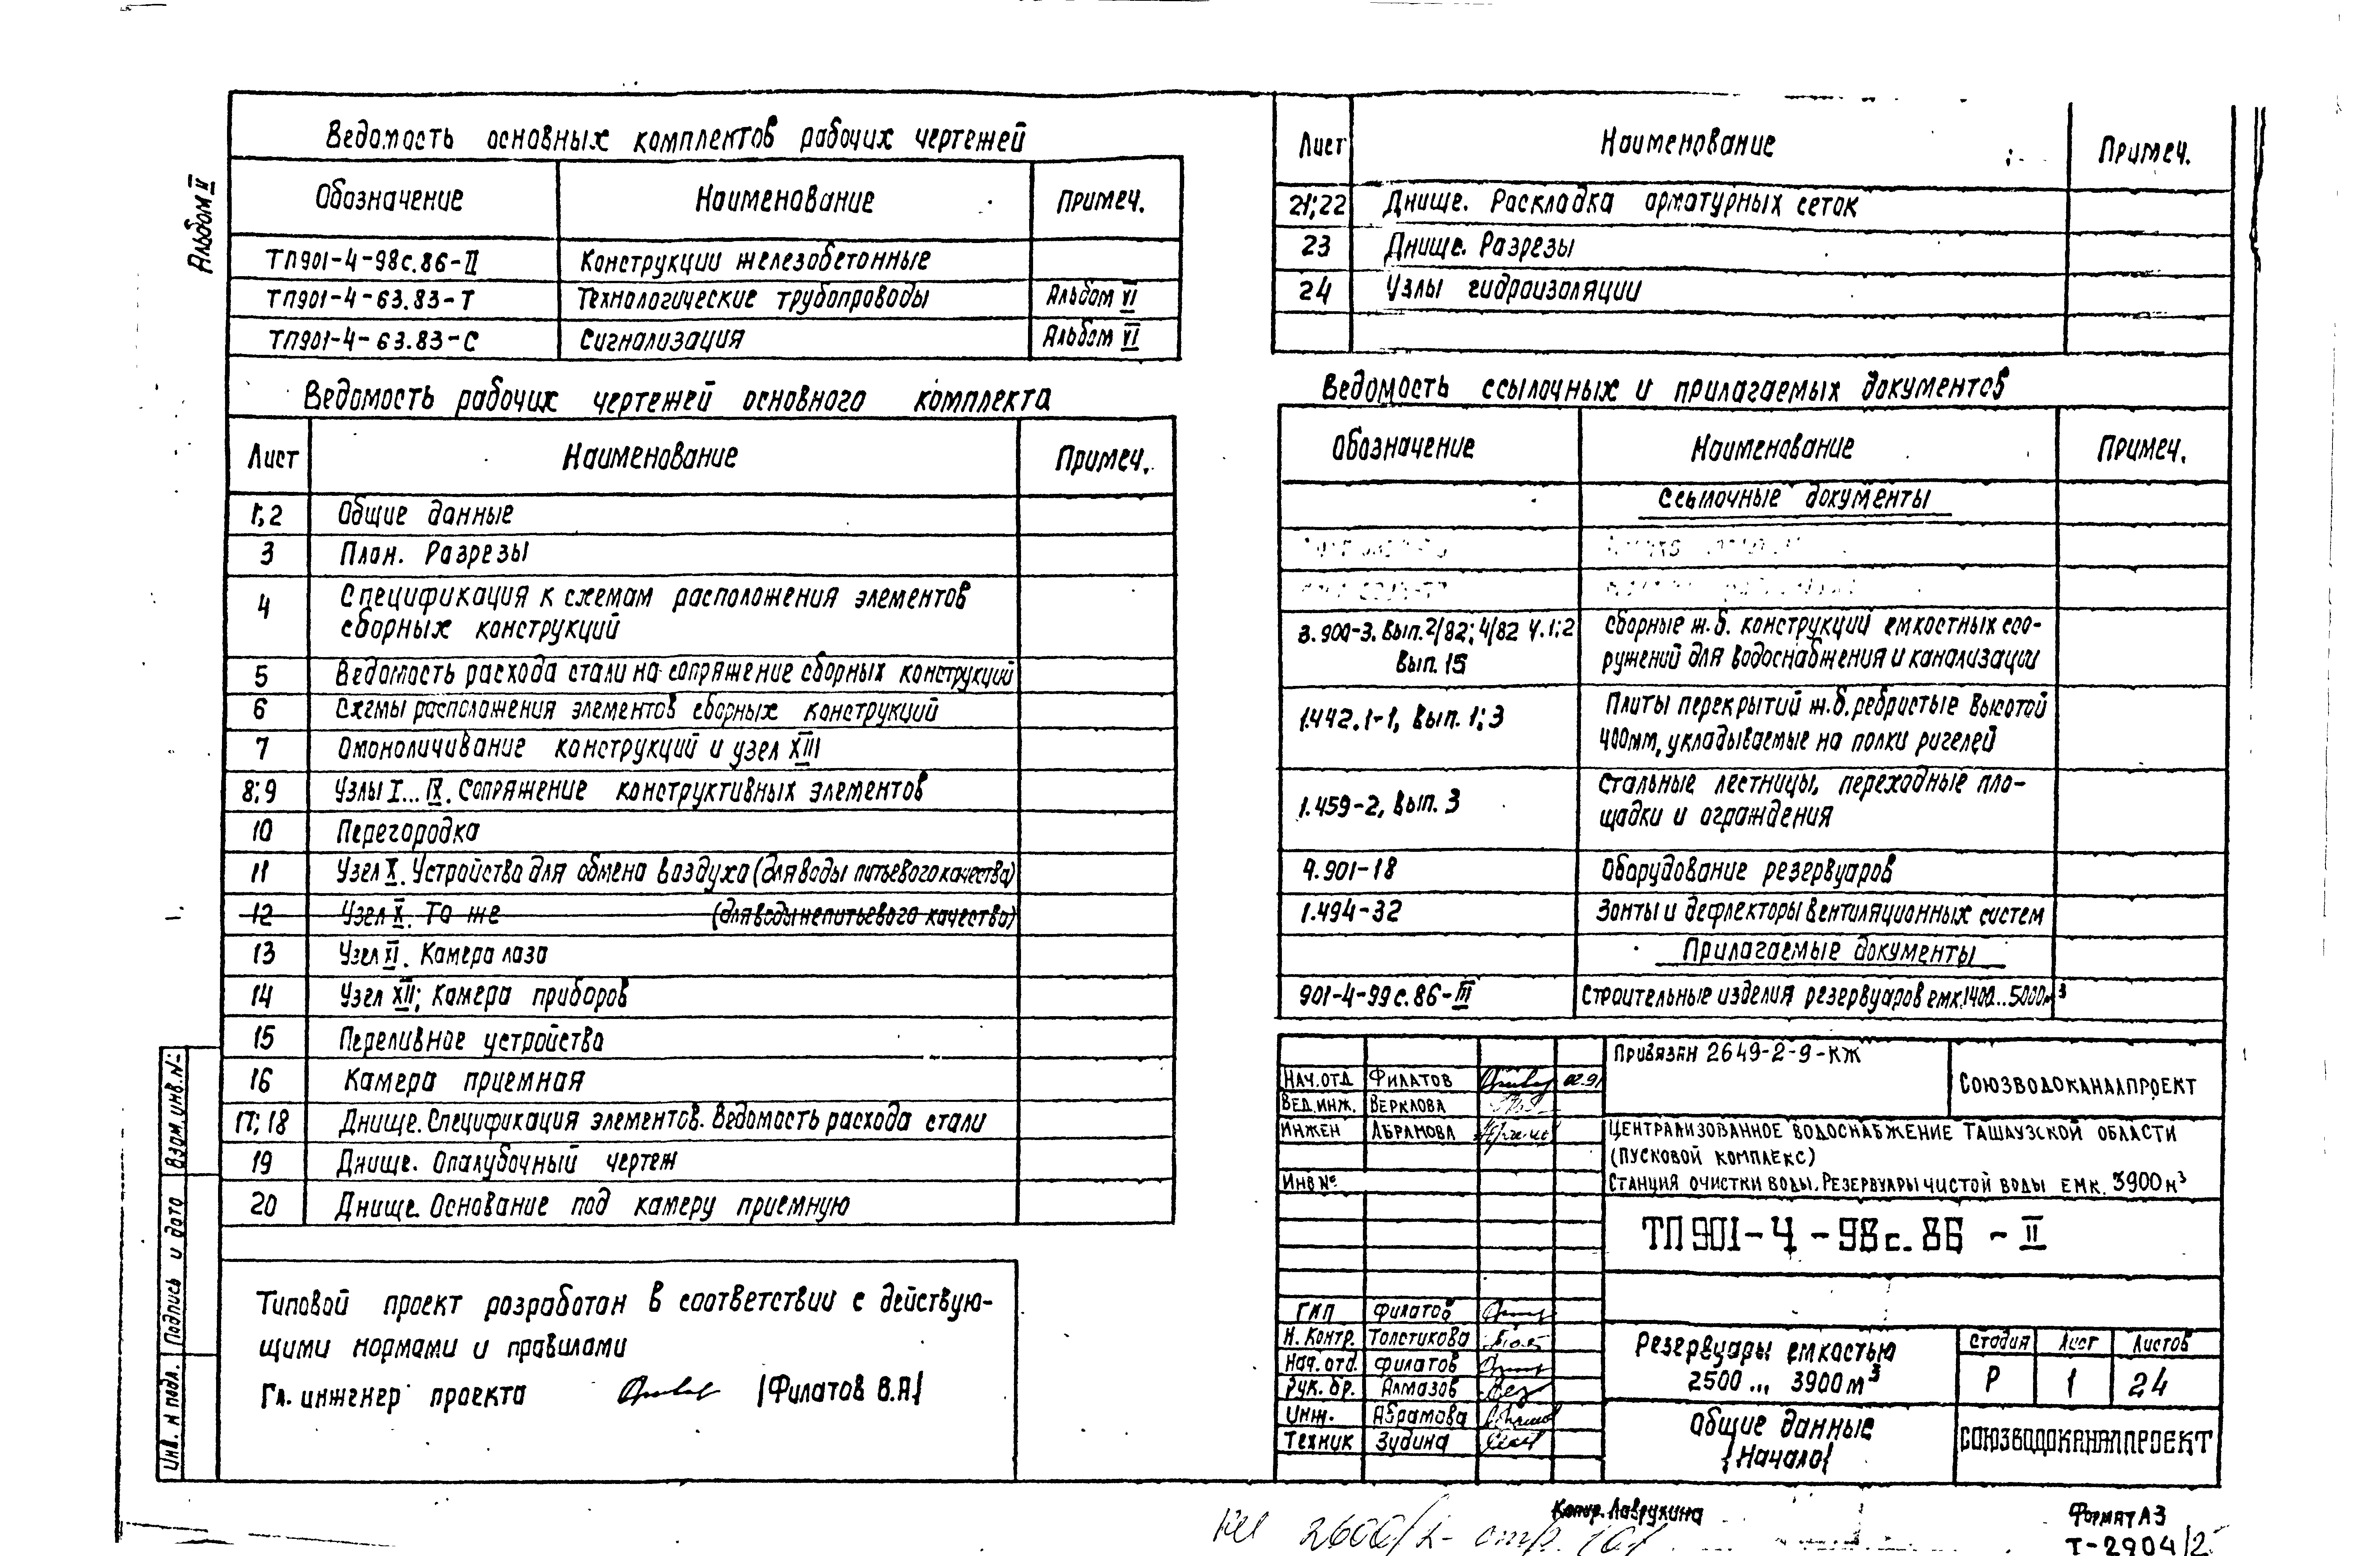 Альбом II
Ведомость основных комплектов рабочих чертежей
Обозначение Наименование Примеч.
ТП901-4-98с.86-II Конструкции железобетонные
ТП901-4-63.83-Т Технологические трубопроводы Альбом VI
ТП901-4-63.83-С Сигнализация Альбом VI
Ведомость рабочих чертежей основного комплекта
Лист Наименование Примеч.
1,2 Общие данные
3 План. Разрезы
4 Спецификация к схемам расположения элементов
сборных конструкций
5 Ведомость расхода стали на сопряжение сборных конструкций
6 Схемы расположения элементов сборных конструкций
7 Омоноличивание конструкций и узел XIII
8;9 Узлы I... IX. Сопряжение конструктивных элементов
10 Перегородка
11 Узел X. Устройства для обмена воздуха (для воды питьевого качества)
12 Узел X. То же (для воды непитьевого качества)
13 Узел XI. Камера лаза
14 Узел XII; Камера приборов
15 Переливное устройство
16 Камера приемная
17; 18 Днище. Спецификация элементов. Ведомость расхода стали
19 Днище. Опалубочный чертеж
20 Днище. Основание под камеру приемную
Типовой проект разработан в соответствии с действую-
щими нормами и правилами
Гл. инженер проекта /Филатов В.А/
Взам. инв. №
Подпись и дата
Инв. № подл.
Лист Наименование Примеч.
21;22 Днище. Раскладка арматурных сеток
23 Днище. Разрезы
24 Узлы гидроизоляции
Ведомость ссылочных и прилагаемых документов
Обозначение Наименование Примеч.
Ссылочные документы
3.900-3. Вып.2/82; 4/82 ч.1;2 Сборные ж.б. конструкций емкостных соо-
Вып. 15 ружений для водоснабжения и канализации
1.442.1-1, Вып. 1; 3 Плиты перекрытий ж.б. ребристые высотой
400мм, укладываемые на полки ригелей
1.459-2, Вып. 3 Стальные лестницы, переходные пло-
щадки и ограждения
4.901-18 Оборудование резервуаров
1.494-32 Зонты и дефлекторы вентиляционных систем
Прилагаемые документы
901-4-99с.86-III Строительные изделия резервуаров емк.1400...5000м³
Привязан 2649-2-9-КЖ
СОЮЗВОДОКАНАЛПРОЕКТ
Нач.отд Филатов 02.91
Вед.инж. Верклова
Инжен Абрамова
Инв №
Централизованное водоснабжение Ташаузской области
(пусковой комплекс)
Станция очистки воды. Резервуары чистой воды емк. 3900м³
ТП 901-4-98с.86 - II
ГИП Филатов
Н. контр. Толстикова
Нач. отд. Филатов
Рук. бр. Алмазов
Инж. Абрамова
Техник Зудина
Резервуары емкостью
2500 ... 3900м³
Стадия Лист Листов
Р 1 24
Общие данные
/Начало/
СОЮЗВОДОКАНАЛПРОЕКТ
Копир. Лаврухина
Формат А3
Т-2904/2